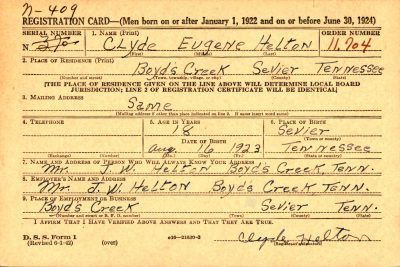 N-409
REGISTRATION CARD—(Men born on or after January 1, 1922 and on or before June 30, 1924)
SERIAL NUMBER 1. NAME (Print) ORDER NUMBER
N Clyde Eugene Helton 11,704
(First) (Middle) (Last)
2. PLACE OF RESIDENCE (Print)
Boyd's Creek Sevier Tennessee
(Number and street) (Town, township, village, or city) (County) (State)
[THE PLACE OF RESIDENCE GIVEN ON THE LINE ABOVE WILL DETERMINE LOCAL BOARD
JURISDICTION; LINE 2 OF REGISTRATION CERTIFICATE WILL BE IDENTICAL]
3. MAILING ADDRESS
Same
[Mailing address if other than place indicated on line 2. If same insert word same]
4. TELEPHONE 5. AGE IN YEARS 6. PLACE OF BIRTH
18 Sevier
DATE OF BIRTH (Town or county)
Aug. 16 1923 Tennessee
(Exchange) (Number) (Mo.) (Day) (Yr.) (State or country)
7. NAME AND ADDRESS OF PERSON WHO WILL ALWAYS KNOW YOUR ADDRESS
Mr. J. W. Helton Boyd's Creek, Tenn.
8. EMPLOYER'S NAME AND ADDRESS
Mr. J. W. Helton Boyd's Creek Tenn.
9. PLACE OF EMPLOYMENT OR BUSINESS
Boyd's Creek Sevier Tenn.
(Number and street or R. F. D. number) (Town) (County) (State)
I AFFIRM THAT I HAVE VERIFIED ABOVE ANSWERS AND THAT THEY ARE TRUE.
D. S. S. Form 1
(Revised 6-1-42) (over) Clyde Helton